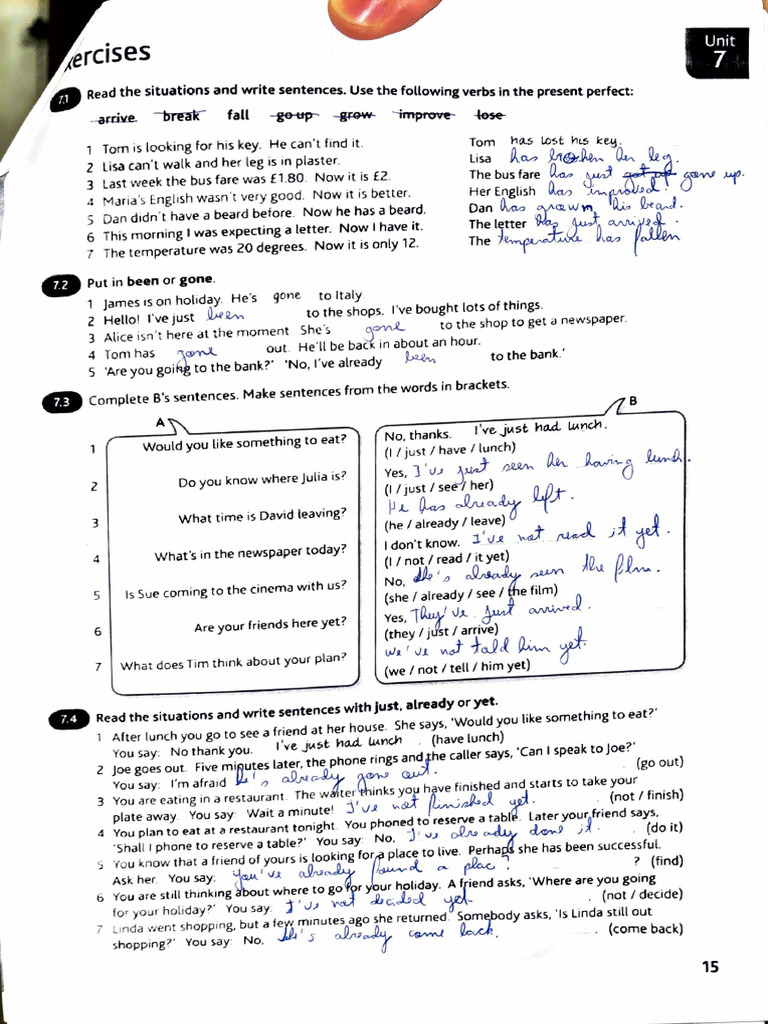 ercises
Unit
7
7.1 Read the situations and write sentences. Use the following verbs in the present perfect:
arrive break fall go up grow improve lose
1 Tom is looking for his key. He can't find it. Tom has lost his key.
2 Lisa can't walk and her leg is in plaster. Lisa has broken her leg.
3 Last week the bus fare was £1.80. Now it is £2. The bus fare has just got up gone up.
4 Maria's English wasn't very good. Now it is better. Her English has improved.
5 Dan didn't have a beard before. Now he has a beard. Dan has grown his beard.
6 This morning I was expecting a letter. Now I have it. The letter has just arrived.
7 The temperature was 20 degrees. Now it is only 12. The temperature has fallen
7.2 Put in been or gone.
1 James is on holiday. He's gone to Italy
2 Hello! I've just been to the shops. I've bought lots of things.
3 Alice isn't here at the moment She's gone to the shop to get a newspaper.
4 Tom has gone out. He'll be back in about an hour.
5 'Are you going to the bank?' 'No, I've already been to the bank.'
7.3 Complete B's sentences. Make sentences from the words in brackets.
A
1 Would you like something to eat?
2 Do you know where Julia is?
3 What time is David leaving?
4 What's in the newspaper today?
5 Is Sue coming to the cinema with us?
6 Are your friends here yet?
7 What does Tim think about your plan?
B
No, thanks. I've just had lunch.
(I / just / have / lunch)
Yes, I've just seen her having lunch.
(I / just / see / her)
He has already left.
(he / already / leave)
I don't know. I've not read it yet.
(I / not / read / it yet)
No, she's already seen the film.
(she / already / see / the film)
Yes, They've just arrived.
(they / just / arrive)
We've not told him yet.
(we / not / tell / him yet)
7.4 Read the situations and write sentences with just, already or yet.
1 After lunch you go to see a friend at her house. She says, 'Would you like something to eat?'
You say: No thank you. I've just had lunch . (have lunch)
2 Joe goes out. Five minutes later, the phone rings and the caller says, 'Can I speak to Joe?'
You say: I'm afraid he's already gone out. (go out)
3 You are eating in a restaurant. The waiter thinks you have finished and starts to take your
plate away. You say: Wait a minute! I've not finished yet. . (not / finish)
4 You plan to eat at a restaurant tonight. You phoned to reserve a table. Later your friend says,
'Shall I phone to reserve a table?' You say: No, I've already done it. . (do it)
5 You know that a friend of yours is looking for a place to live. Perhaps she has been successful.
Ask her. You say: You've already found a plac? ? (find)
6 You are still thinking about where to go for your holiday. A friend asks, 'Where are you going
for your holiday?' You say: I've not decided yet. . (not / decide)
7 Linda went shopping, but a few minutes ago she returned. Somebody asks, 'Is Linda still out
shopping?' You say: No, she's already come back. . (come back)
15